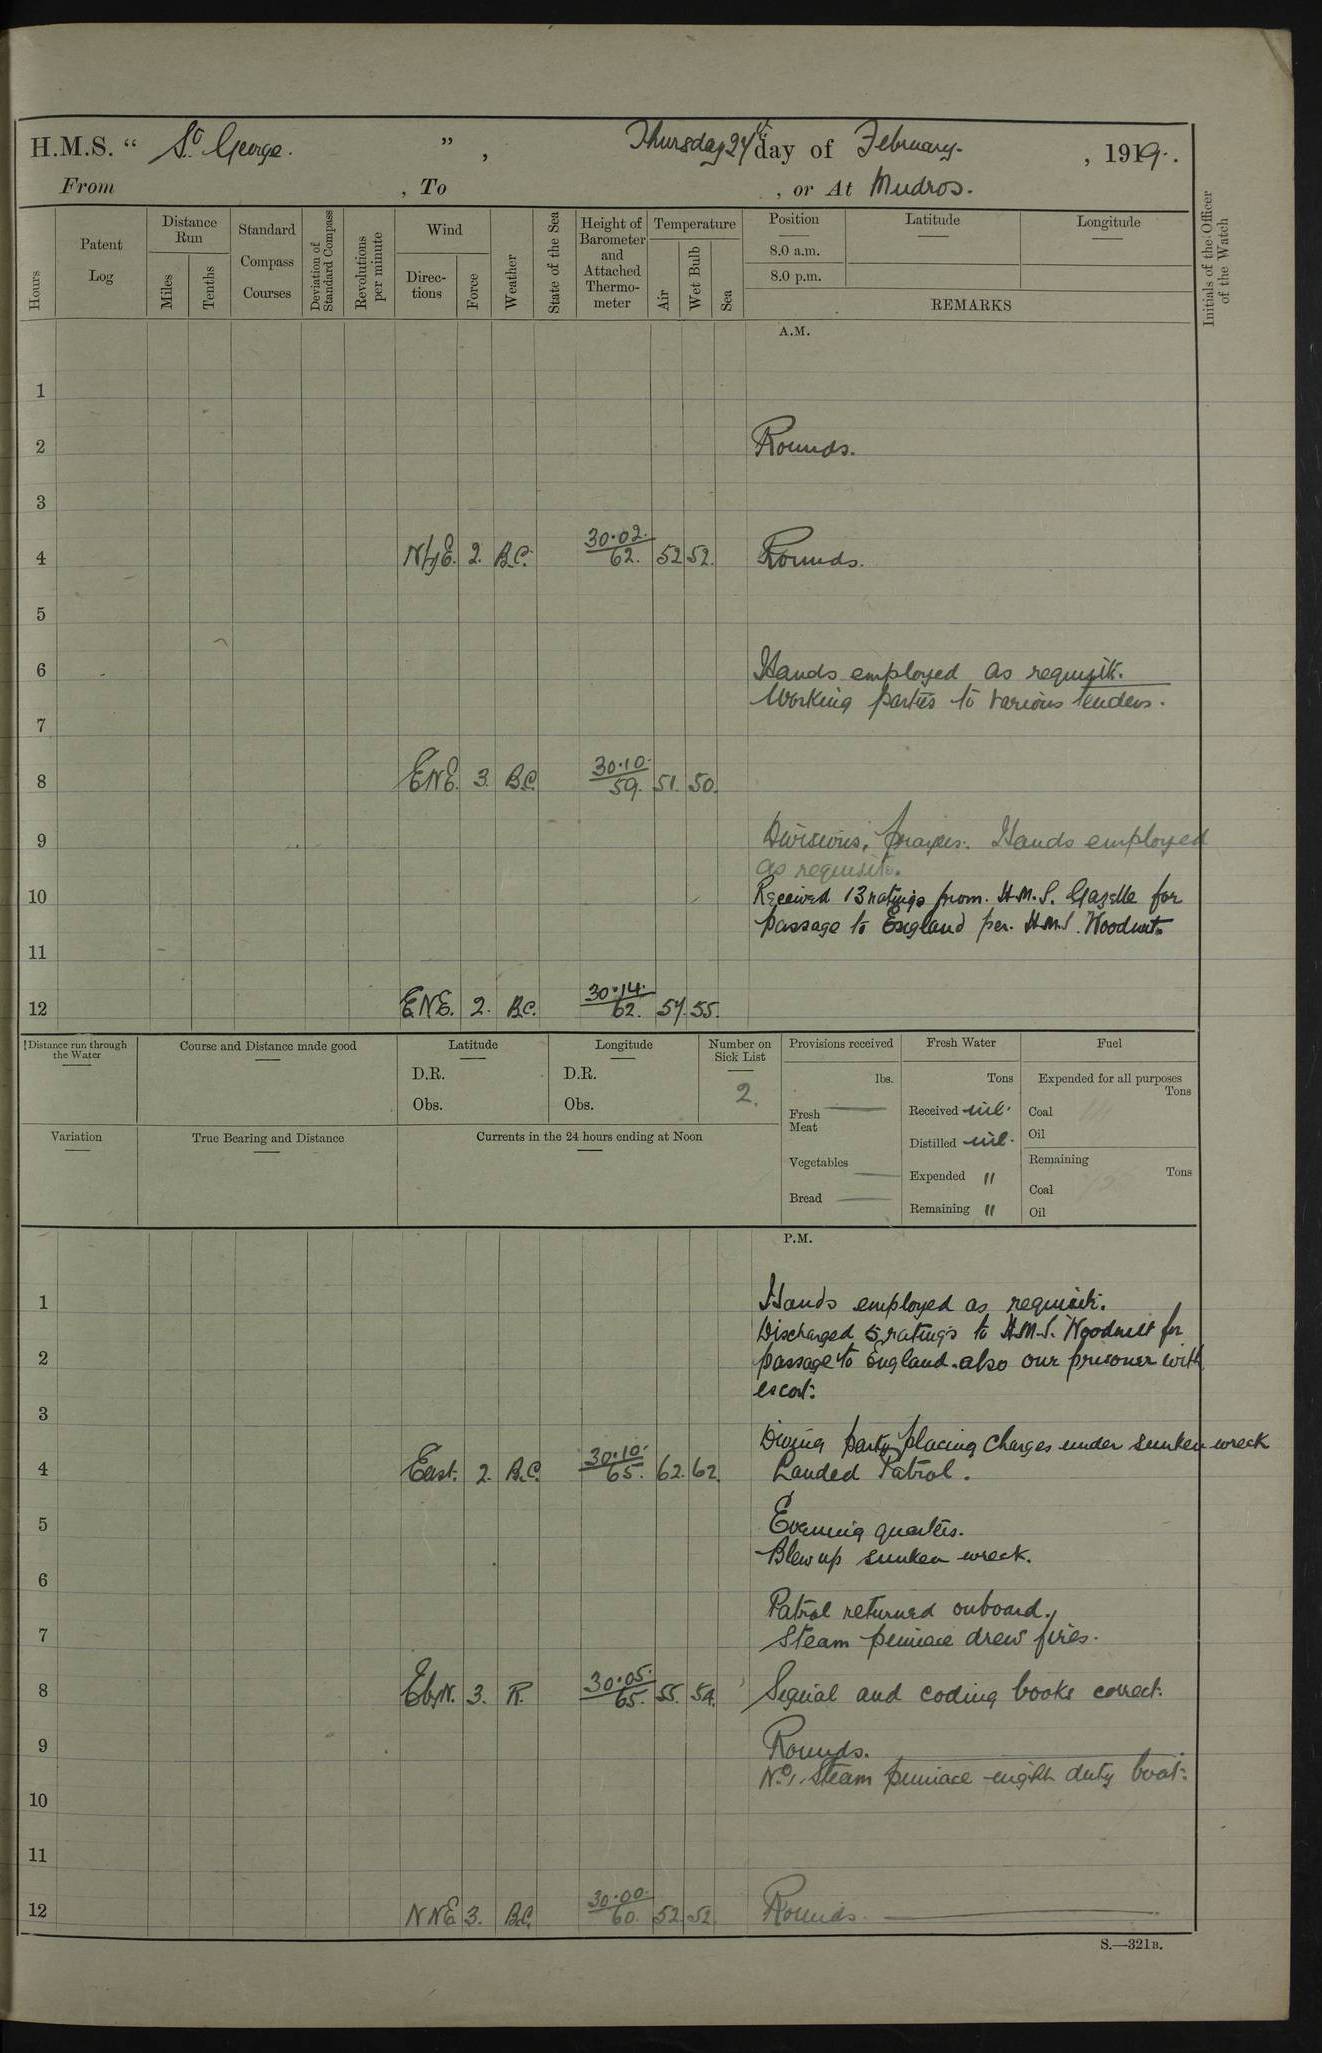 H.M.S. “ St. George. ” , Thursday 27th day of February. , 1919.
From , To , or At Mudros.
Hours
Patent Log
Distance Run
Miles
Tenths
Standard Compass Courses
Deviation of Standard Compass
Revolutions per minute
Wind
Directions
Force
Weather
State of the Sea
Height of Barometer and Attached Thermometer
Temperature
Air
Wet Bulb
Sea
Position
Latitude
Longitude
8.0 a.m.
8.0 p.m.
REMARKS
Initials of the Officer of the Watch
A.M.
1
2 Rounds.
3
4 N by E. 2. B.C. 30.02. 62. 52 52. Rounds.
5
6 Hands employed as requisite.
Working parties to various tenders.
7
8 ENE. 3. B.C. 30.10. 59. 51. 50.
9 Divisions, prayers. Hands employed
as requisite.
10 Received 13 ratings from. H.M.S. Gazelle for
passage to England per. H.M.S. Woodnut.
11
12 ENE. 2. B.C. 30.14. 62. 57. 55.
Distance run through the Water
Course and Distance made good
Latitude
D.R.
Obs.
Longitude
D.R.
Obs.
Number on Sick List
2.
Provisions received
lbs.
Fresh Meat
Vegetables
Bread
Fresh Water
Tons
Received nil.
Distilled nil.
Expended "
Remaining "
Fuel
Expended for all purposes
Tons
Coal
Oil
Remaining
Tons
Coal
Oil
Variation
True Bearing and Distance
Currents in the 24 hours ending at Noon
P.M.
1 Hands employed as requisite.
Discharged 5 ratings to H.M.S. Woodnut for
2 passage to England. also our prisoner with
escort.
3
Diving party placing charges under sunken wreck
4 East. 2. B.C. 30.10. 65. 62. 62. Landed Patrol.
5 Evening quarters.
Blew up sunken wreck.
6
Patrol returned onboard.
7 Steam pinnace drew fires.
8 E by N. 3. R. 30.05. 65. 55. 54. Signal and coding books correct.
9 Rounds.
No. 1. Steam pinnace night duty boat.
10
11
12 NNE 3. B.C. 30.00. 60. 52. 52. Rounds.
S.—321B.